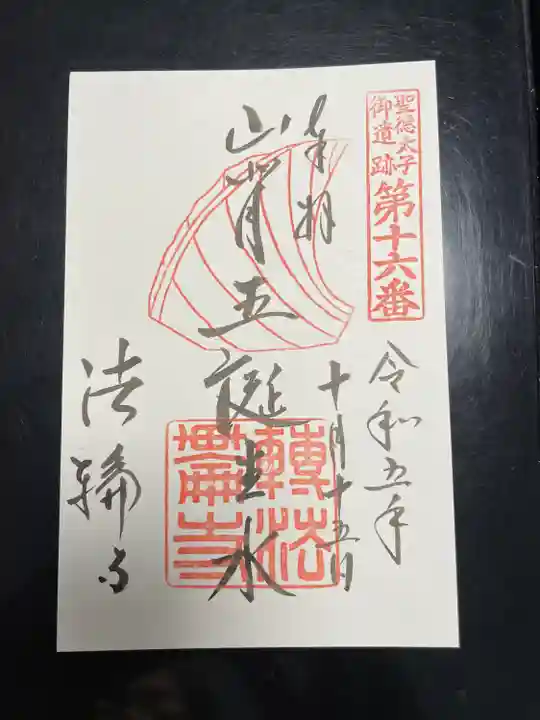 聖徳太子
御遺跡
第十六番
奉拝
令和五年
十月十五日
山背王誕生水
轉法
法輪寺